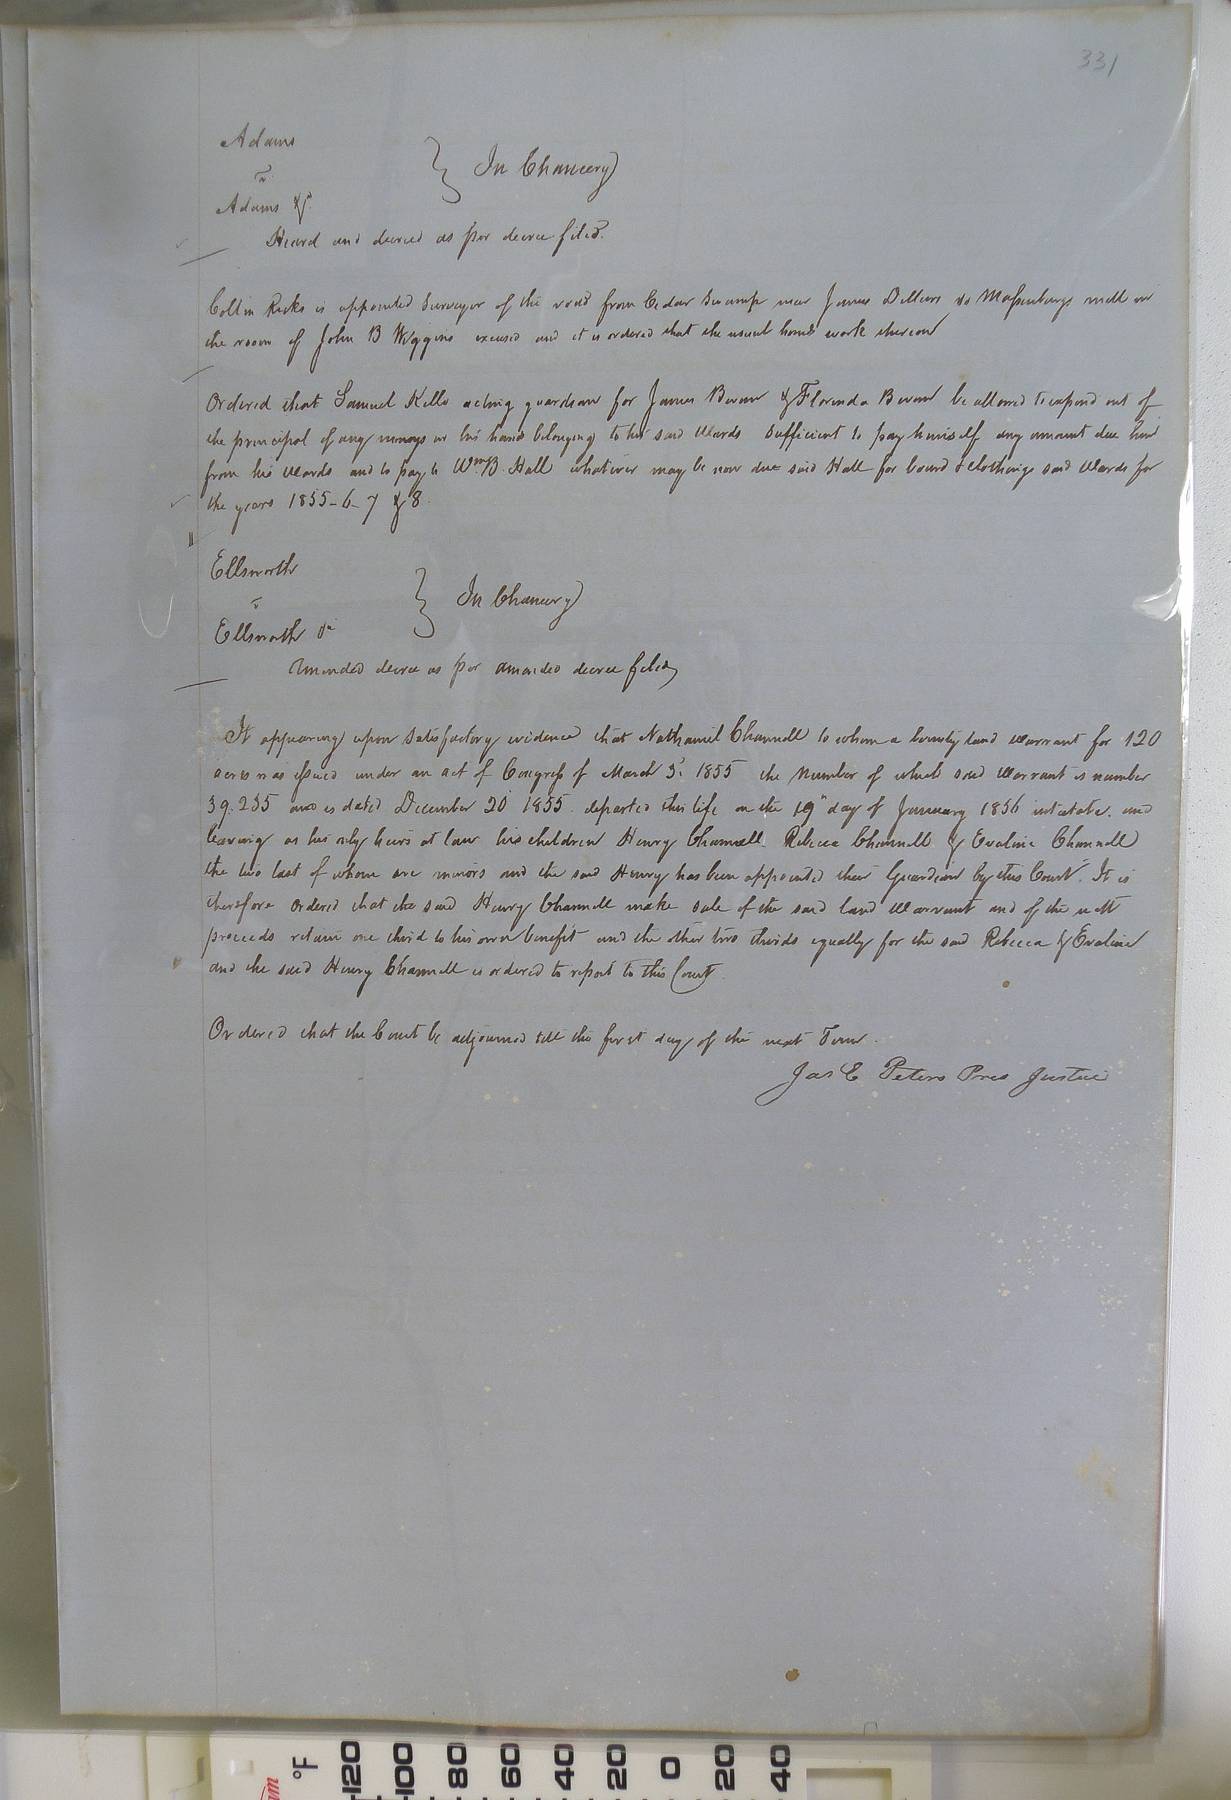 331
Adams
vs
Adams &c
In Chancery
Heard and decreed as per decree filed.
Collin Ricks is appointed Surveyor of the road from Cedar Swamp near James Dillars to Massenburgs mill in
the room of John B Wiggins excused and it is ordered that the usual hands work thereon
Ordered that Samuel Kello acting guardian for James Bevan & Florinda Bevan be allowed to expend out of
the principal of any moneys in his hands belonging to his said Wards sufficient to pay himself any amount due him
from his Wards and to pay to Wm B. Hall whatever may be now due said Hall for board & clothing said Wards for
the years 1855-6-7 & 8.
Ellsworth
vs
Ellsworth &c
In Chancery
Amended decree as per amended decree filed
It appearing upon satisfactory evidence that Nathaniel Channell to whom a bounty land Warrant for 120
acres was issued under an act of Congress of March 3d 1855 the number of which said Warrant is number
39.235 and is dated December 20 1855. departed this life on the 19th day of January 1856 intestate. and
leaving as his only heirs at law his children Henry Channell. Rebecca Channell & Evaline Channell
the two last of whom are minors and the said Henry has been appointed their Guardian by this Court. It is
therefore ordered that the said Henry Channell make sale of the said land Warrant and of the nett
proceeds retain one third to his own benefit and the other two thirds equally for the said Rebecca & Evaline
and the said Henry Channell is ordered to report to this Court.
Ordered that the Court be adjourned till the first day of the next Term.
Jas E Peters Pres Justice
°F
120 100 80 60 40 20 0 20 40